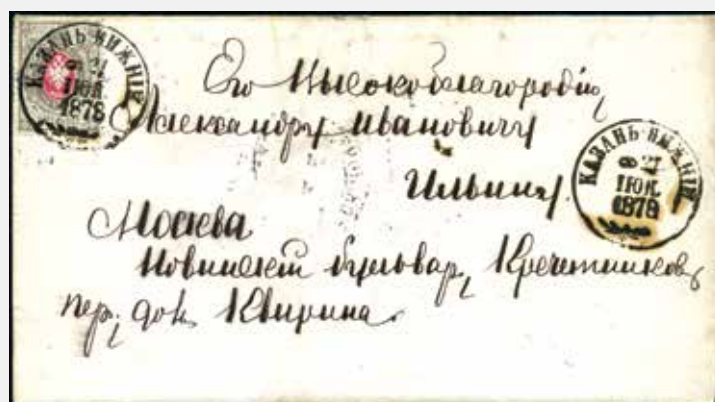 КАЗАНЬ НИЖНІЙ
21
ІЮЛ.
1878
Его Высокоблагородію
Александру Ивановичу
Ильину.
КАЗАНЬ НИЖНІЙ
21
ІЮЛ.
1878
Москва
Новинскій бульвар, Кречетников
пер; дом Квирина.